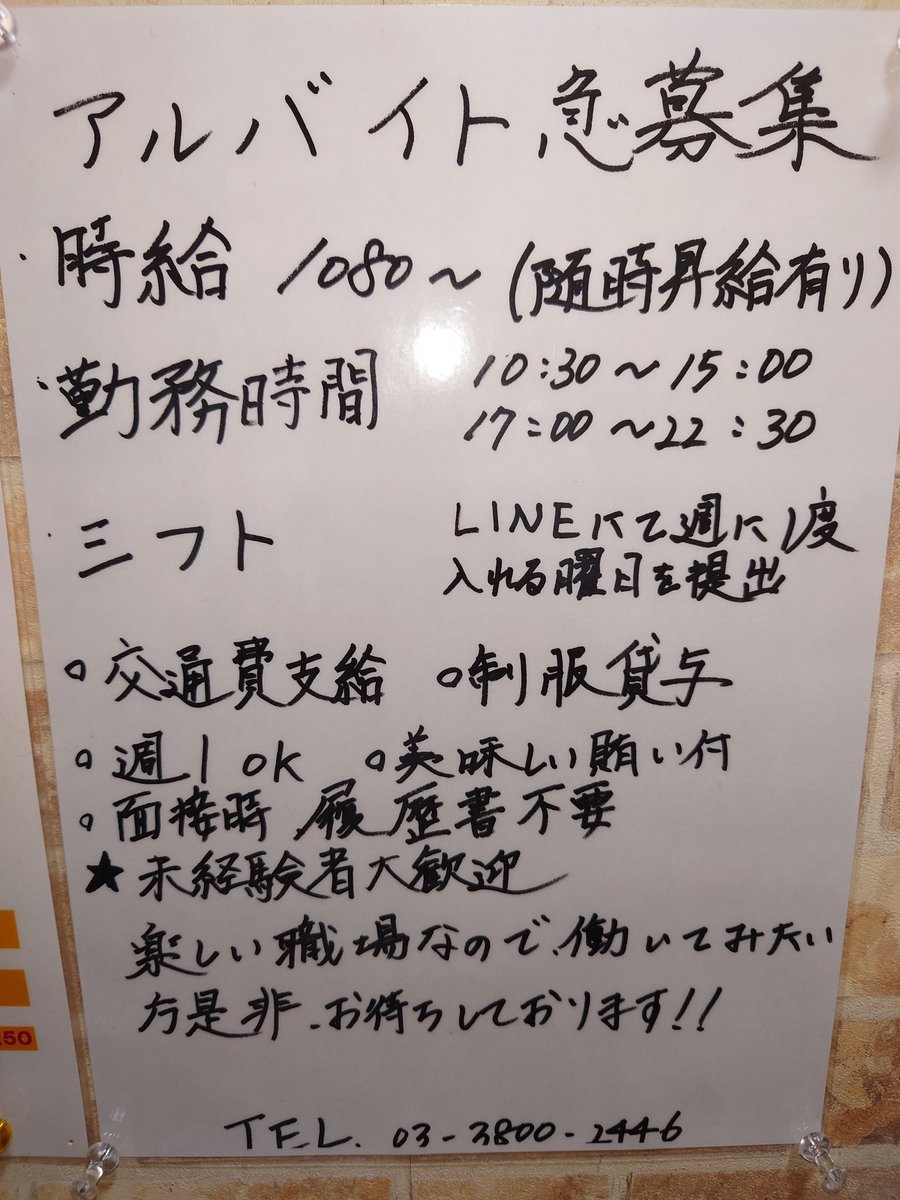 アルバイト急募集
・時給 1080～(随時昇給有り)
・勤務時間 10:30～15:00
17:00～22:30
三フト LINEにて週に1度
入れる曜日を提出
○交通費支給 ○制服貸与
○週1 ok ○美味しい賄い付
○面接時 履歴書不要
★未経験者大歓迎
楽しい職場なので、働いてみたい
方是非、お待ちしております!!
TEL. 03-3800-2446
.50